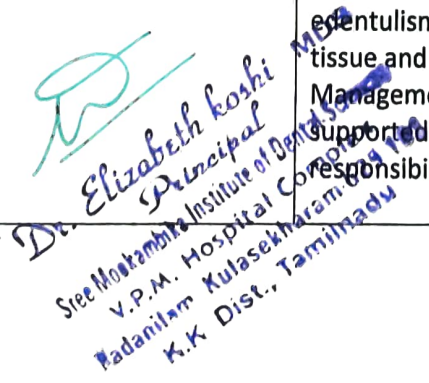 edentulism
tissue and
Manageme
supported
responsibi
Dr. Elizabeth koshi MDS
Principal
Sree Mookambika Institute of Dental
V.P.M. Hospital Complex
Padanilam Kulasekharam
K.K Dist., Tamilnadu